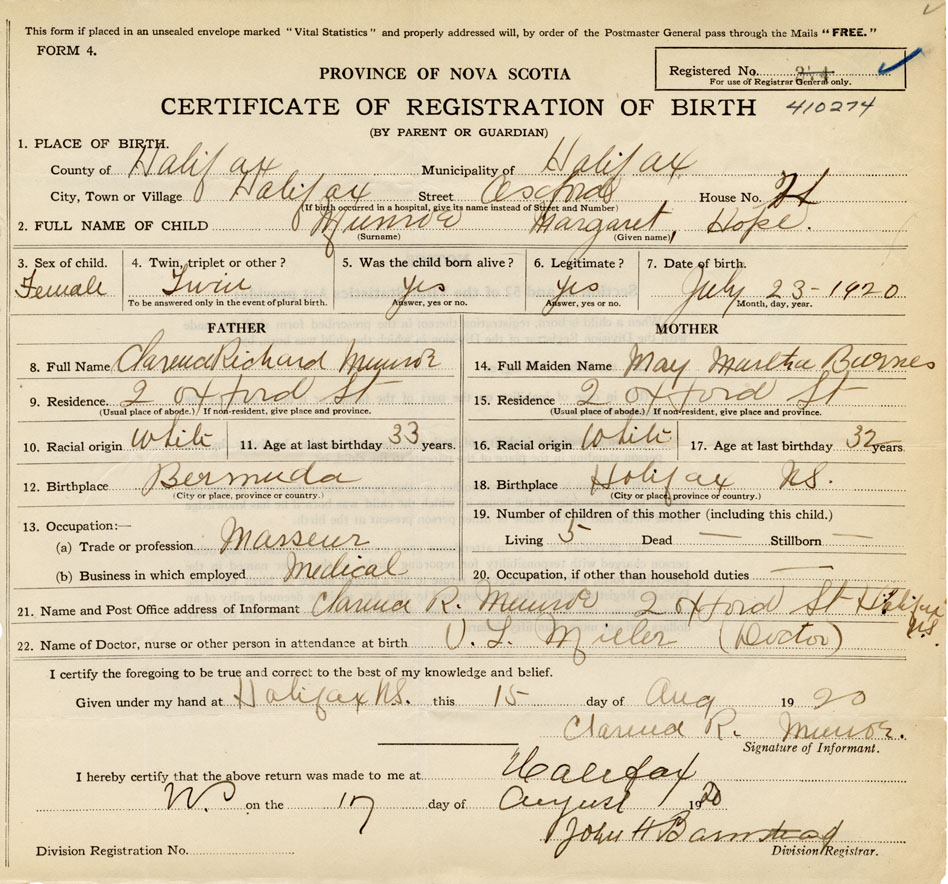 This form if placed in an unsealed envelope marked "Vital Statistics" and properly addressed will, by order of the Postmaster General pass through the Mails "FREE."
FORM 4.
PROVINCE OF NOVA SCOTIA
Registered No.
For use of Registrar General only.
CERTIFICATE OF REGISTRATION OF BIRTH 410274
(BY PARENT OR GUARDIAN)
1. PLACE OF BIRTH.
County of Halifax Municipality of Halifax
City, Town or Village Halifax Street Oxford House No.
(If birth occurred in a hospital, give its name instead of Street and Number)
2. FULL NAME OF CHILD Munroe Margaret, Hope.
(Surname) (Given name)
3. Sex of child. 4. Twin, triplet or other? 5. Was the child born alive? 6. Legitimate? 7. Date of birth.
Female Twin Yes Yes July 23-1920
To be answered only in the event of plural birth. Answer, yes or no. Answer, yes or no. Month, day, year.
FATHER MOTHER
8. Full Name Clarence Richard Munroe 14. Full Maiden Name May Martha Burnes
9. Residence. 2 Oxford St 15. Residence 2 Oxford St
(Usual place of abode.) If non-resident, give place and province. (Usual place of abode.) If non-resident, give place and province.
10. Racial origin White 11. Age at last birthday 33 years. 16. Racial origin White 17. Age at last birthday 32 years.
12. Birthplace Bermuda 18. Birthplace Halifax NS.
(City or place, province or country.) (City or place, province or country.)
13. Occupation:— 19. Number of children of this mother (including this child.)
(a) Trade or profession Masseur Living 5 Dead — Stillborn —
(b) Business in which employed Medical 20. Occupation, if other than household duties —
21. Name and Post Office address of Informant Clarence R. Munroe 2 Oxford St Halifax NS.
22. Name of Doctor, nurse or other person in attendance at birth V. L. Miller (Doctor)
I certify the foregoing to be true and correct to the best of my knowledge and belief.
Given under my hand at Halifax NS. this 15 day of Aug 1920
Clarence R. Munroe.
Signature of Informant.
I hereby certify that the above return was made to me at Halifax
on the 17 day of August 1920
John H Barnstead
Division Registration No. Division Registrar.